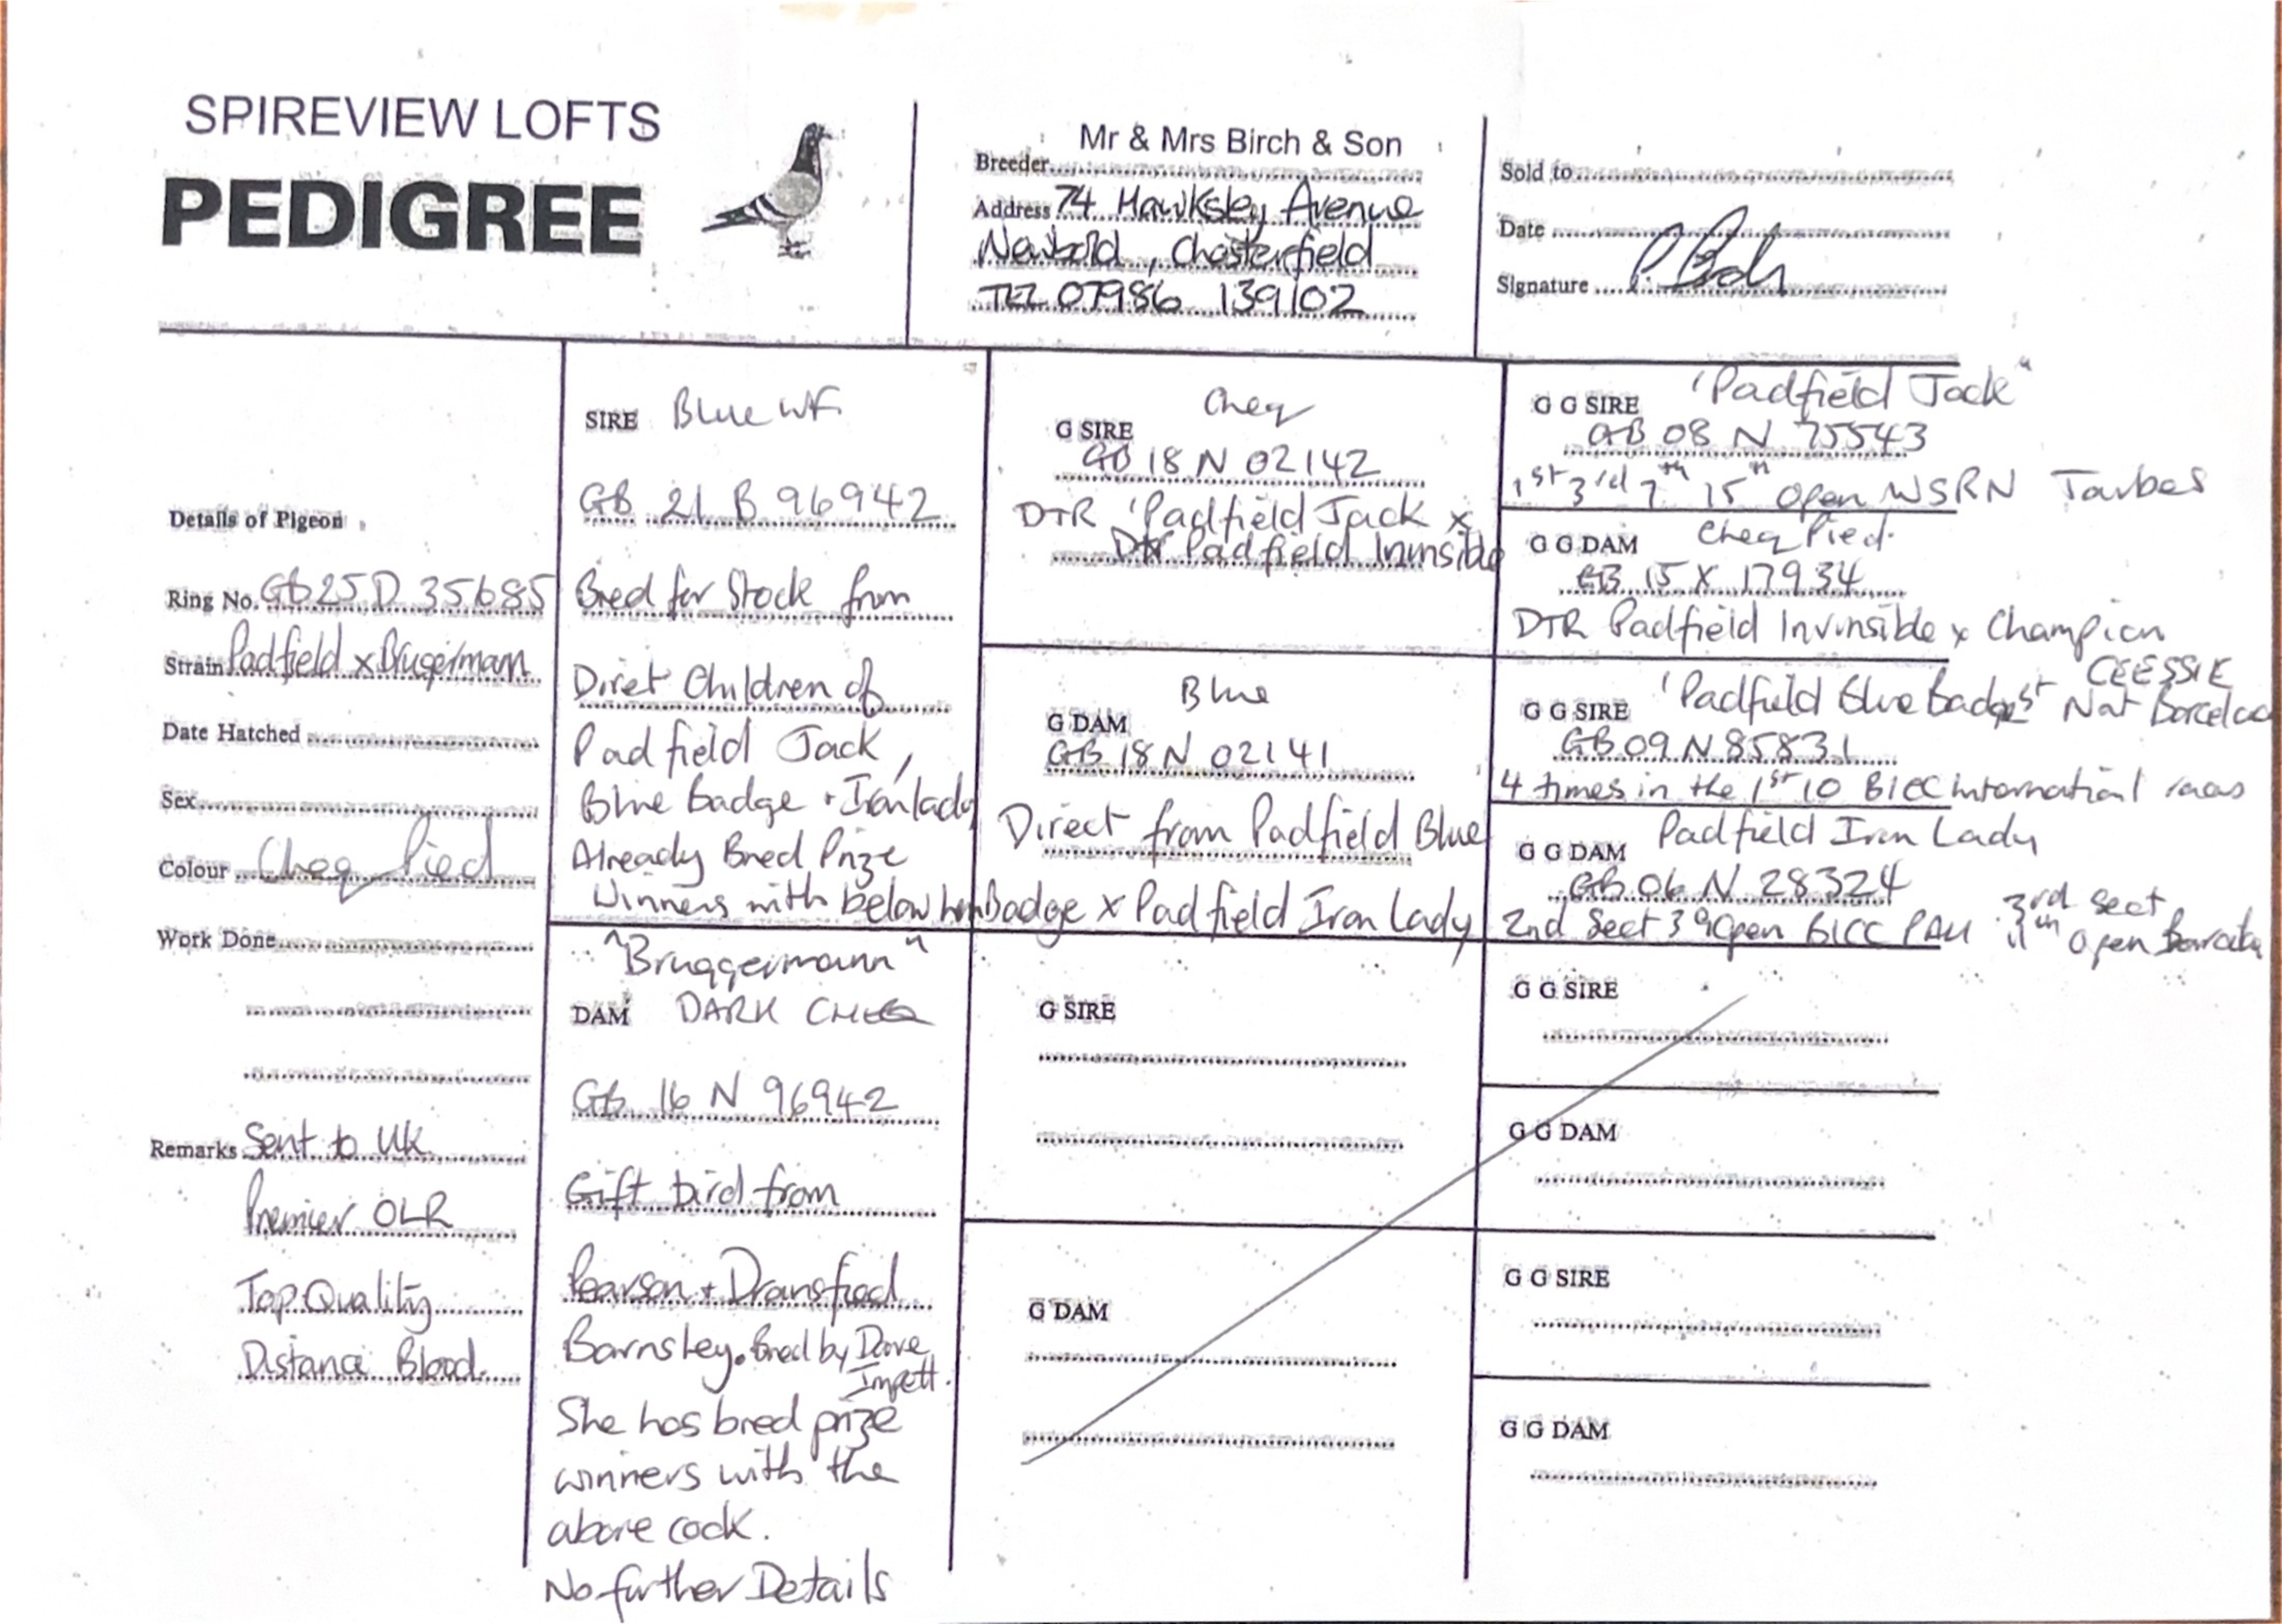 SPIREVIEW LOFTS
PEDIGREE
Mr & Mrs Birch & Son
Breeder
Address 74 Hawksley Avenue
Newbold, Chesterfield
TEL 07986 139102
Sold to
Date
Signature
Details of Pigeon
Ring No. GB25D 35685
Strain Padfield x Brugermann
Date Hatched
Sex
Colour Cheq Pied
Work Done
Remarks Sent to UK
Premier OLR
Top Quality
Distance Blood.
SIRE Blue WF
GB 21 B 96942
Bred for Stock from
Diret Children of
Padfield Jack,
Blue Badge + Iron lady
Already Bred Prize
Winners with below hen
"Bruggermann"
DAM DARK CHEQ
GB 16 N 96942
Gift bird from
Pearson + Dransfied
Barnsley. Bred by Dave
Impett.
She has bred prize
winners with the
above cock.
No further Details
Cheq
G SIRE
GB 18 N 02142
DTR 'Padfield Jack x
Dtr Padfield Invinsible
Blue
G DAM
GB 18 N 02141
Direct from Padfield Blue
Badge x Padfield Iron Lady
G SIRE
G DAM
G G SIRE 'Padfield Jack"
GB 08 N 75543
1st 3rd 7th 15th Open WSRN Tarbes
G G DAM Cheq Pied.
GB 15 X 17934
DTR Padfield Invinsible x Champion
CEESSIE
G G SIRE 'Padfield Blue Badge 1st Nat
GB 09 N 85831
4 times in the 1st 10 BICC International races
Padfield Iron Lady
G G DAM
GB 06 N 28324
2nd Sect 39 Open BICC PAU 3rd Sect
11th Open
G G SIRE
G G DAM
G G SIRE
G G DAM